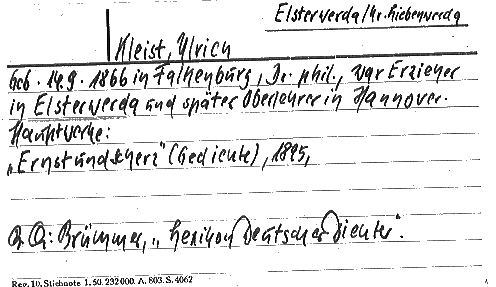 Elsterwerda/Kr. Liebenwerda
Kleist, Ulrich
Geb. 14.9. 1866 in Falkenburg, Dr. phil., war Erzieher
in Elsterwerda und später Oberlehrer in Hannover.
Hauptwerke:
„Ernst und Scherz" (Gedichte), 1895,
Brümmer, „Lexikon Deutscher Dichter".
Reg. 10. Stichnote 1. 50. 232000. A. 803. S. 4062